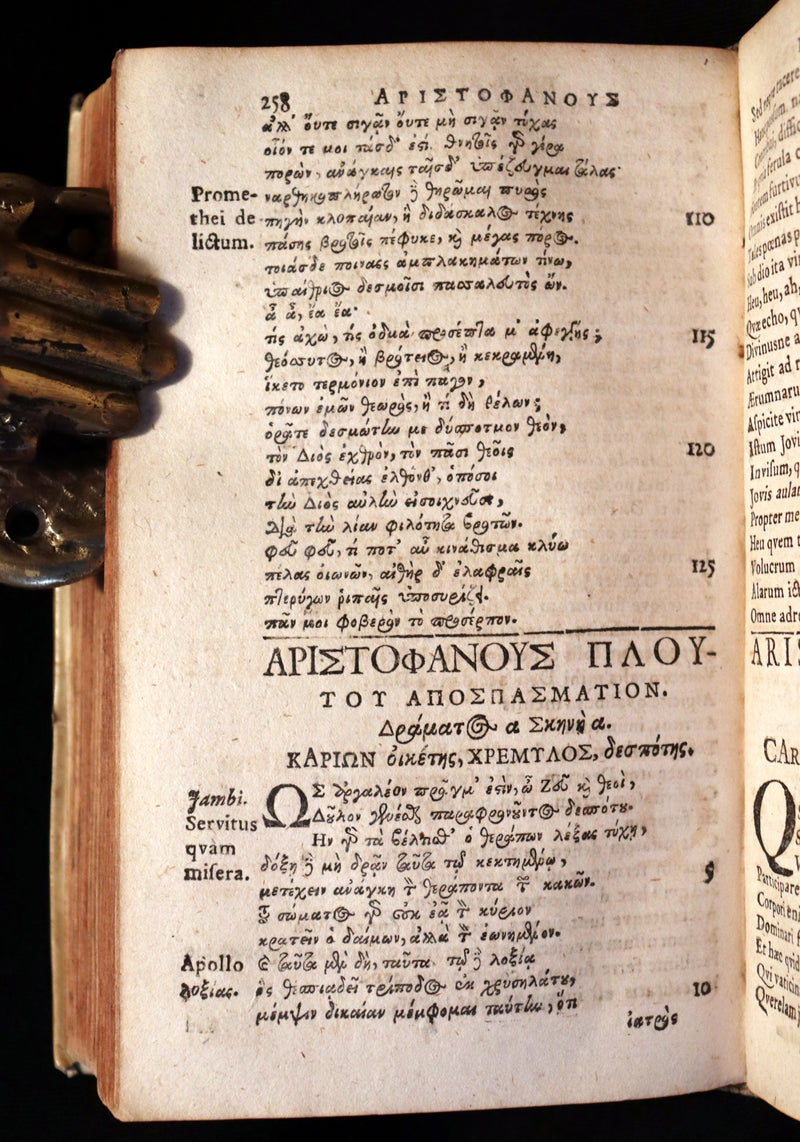 258 ΑΡΙΣΤΟΦΑΝΟΥΣ
ἀλλ' ὄυτε σιγᾶν ὄυτε μὴ σιγᾶν τύχας
οἷόν τε μοι τάσδ' ἐςί. θνητοῖς γδ γέρα
πορὼν, ἀνάγκαις ταῖσδ' ὑπέζευγμαι τάλας·
Prome- ναρθηκοπλήρωτον ἢ θηρῶμαι πυρὸς
thei de πηγὴν κλοπαίαν, ἣ διδάσκαλος τέχνης 110
lictum. πάσης βροτοῖς πέφυκε, καὶ μέγας πόρος.
τοιάσδε ποινὰς ἀμπλακημάτων τίνω,
ὑπαίθριος δεσμοῖσι πασσαλευτὸς ὤν.
ἆ ἆ, ἔα ἔα·
τίς ἀχὼ, τίς ὀδμὰ προσέπτα μ' ἀφεγγής; 115
θεόσυτος, ἢ βρότειος, ἢ κεκραμένη,
ἵκετο τερμόνιον ἐπὶ πάγον,
πόνων ἐμῶν θεωρὸς, ἢ τί δὴ θέλων;
ὁρᾶτε δεσμώτην με δύσποτμον θεὸν,
τὸν Διὸς ἐχθρὸν, τὸν πᾶσι θεοῖς 120
δι ἀπεχθείας ἐλθόνθ', ὁπόσοι
τὴν Διὸς αὐλὴν εἰσοιχνεῦσι,
Διὰ τὴν λίαν φιλότητα βροτῶν.
φεῦ φεῦ, τί ποτ' αὖ κινάθισμα κλύω
πέλας οἰωνῶν, αἰθὴρ δ' ἐλαφραῖς 125
πτερύγων ῥιπαῖς ὑποσυρίζει.
πᾶν μοι φοβερὸν τὸ προσέρπον.
ΑΡΙΣΤΟΦΑΝΟΥΣ ΠΛΟΥ-
ΤΟΥ ΑΠΟΣΠΑΣΜΑΤΙΟΝ.
Δράματος α Σκηνὴ α.
ΚΑΡΙΩΝ ὀικέτης, ΧΡΕΜΥΛΟΣ, δεσπότης.
Jambi. ΩΣ ἀργαλέον πρᾶγμ' ἐςὶν, ὦ Ζεῦ καὶ θεοὶ,
Servitus Δοῦλον γενέσθαι παραφρονοῦντος δεσπότου.
qvam Ην γδ τὰ βέλτισθ' ὁ θεράπων λέξας τύχῃ,
misera. δόξῃ δὲ μὴ δρᾶν ταῦτα τῷ κεκτημένῳ,
μετέχειν ἀνάγκη τὸν θεράποντα τῶν κακῶν. 5
τοῦ σώματος γδ οὐκ ἐᾷ τὸν κύριον
κρατεῖν ὁ δαίμων, ἀλλὰ τὸν ἐωνημένον.
Apollo Καὶ ταῦτα μὲν δὴ, ταῦτα. τῷ δὲ λοξίᾳ
λοξίας. ὃς θεσπιῳδεῖ τρίποδος ἐκ χρυσηλάτου, 10
μέμψιν δικαίαν μέμφομαι ταύτην, ὅτι
ἰατρὸς
Sed
Heu, heu, ah,
Qvæ echo, q
Divinusne a
Attigit ad r
Ærumnaru
Aspicite vir
Istum Jovi
Invisum, q
Jovis aulam
Propter me
Heu qvem t
Volucrum
Alarum
Omne adre
ARIS
CAR
Q
Participare
Corpori eni
Dominari f
Et hæc qvid
Qvi vaticin
Qverelam j